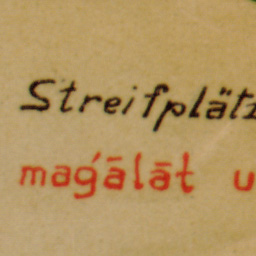 Streifplätz
maǵālāt u